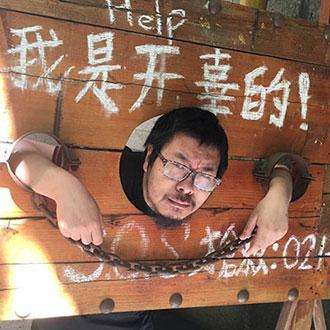 Help
我是开喜的!
SOS :021